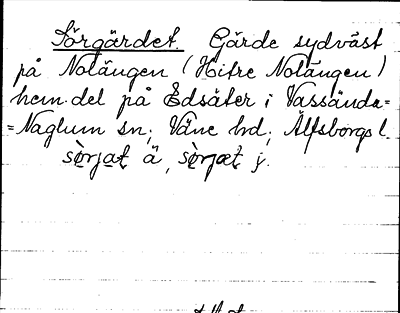 Sörgärdet. Gärde sydväst
på Notängen (Hitre Notängen)
hem.del på Edsäter i Vassända=
=Naglum sn, Väne hd, Älfsborgs l.